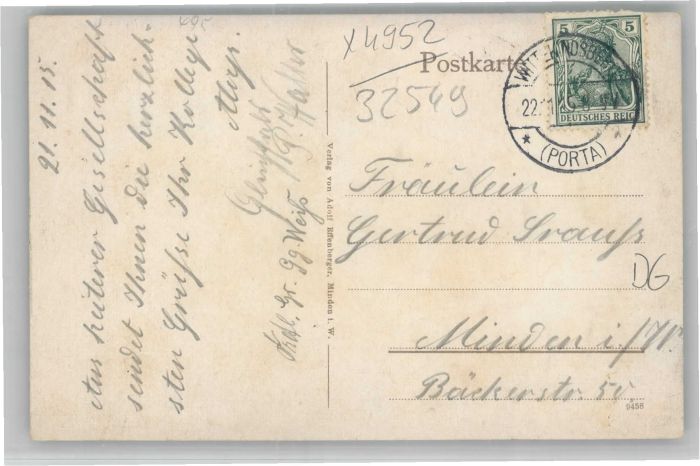 21.11.15.
Aus heiterer Gesellschaft
sendet Ihnen die herzlich-
sten Grüße Ihr Kollege
Gg. Weiß
Verlag von Adolf Effenberger, Minden i. W.
x4952
Postkarte
32549
5 5
DEUTSCHES REICH
22.11.15
* (PORTA) *
Fräulein
Gertrud
DG
Minden i/W.
Bäckerstr. 50
9458